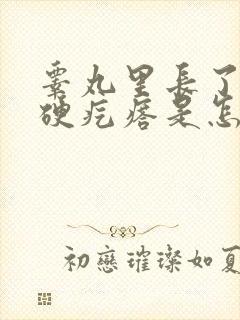 睪丸里長了
硬疙瘩是怎
初戀璀璨如夏